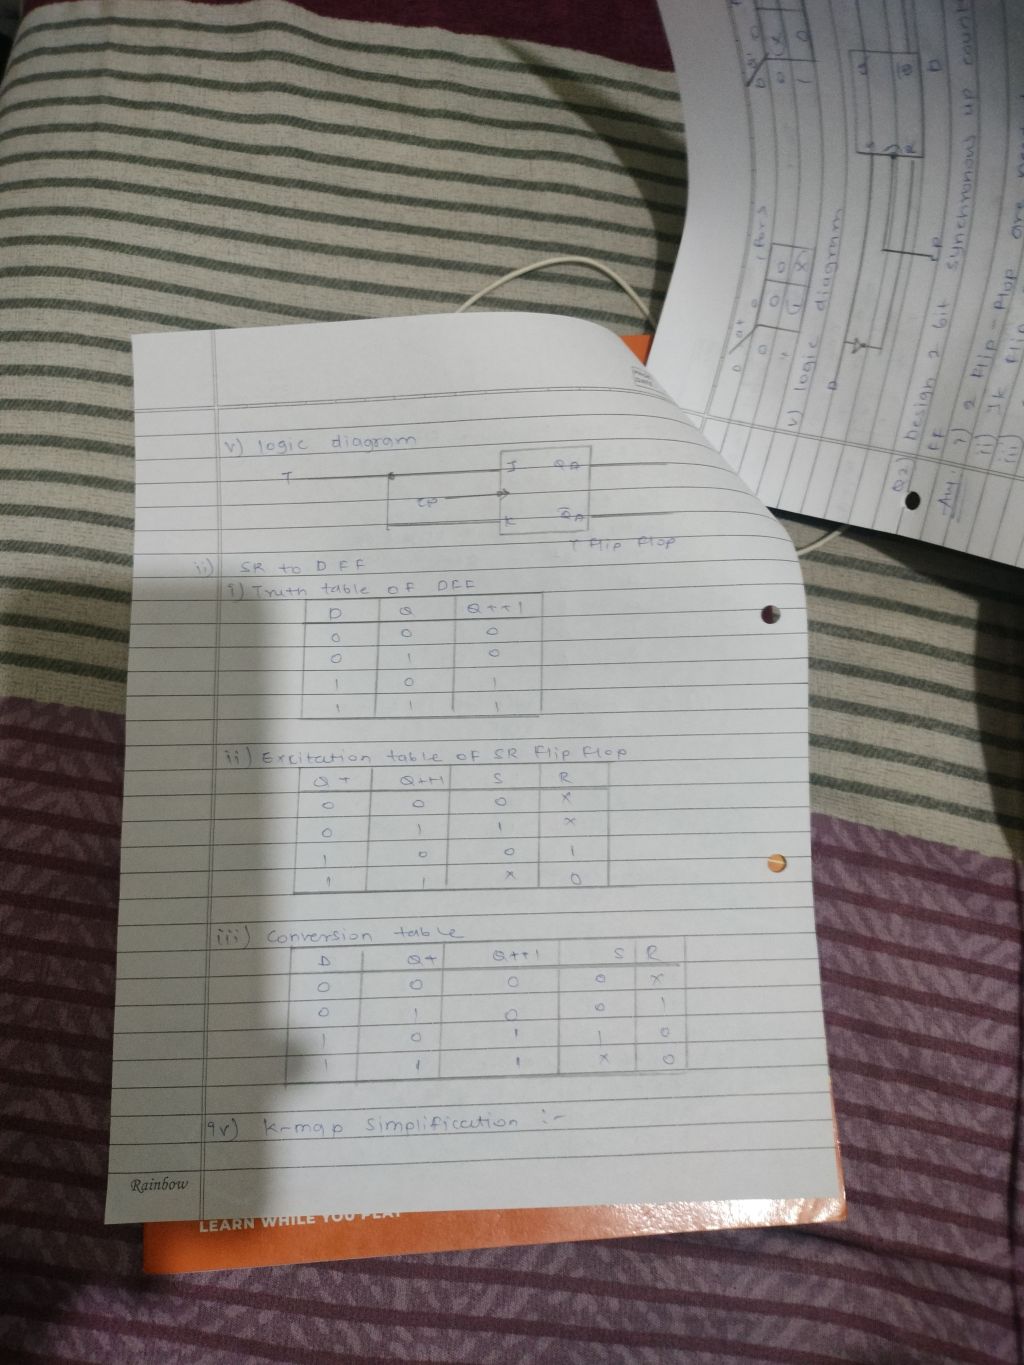 v) logic diagram
T
J QA
CP
K Q̅A
T Flip Flop
ii) SR to D FF
i) Truth table of DFF
D Q Q++1
0 0 0
0 1 0
1 0 1
1 1 1
ii) Excitation table of SR Flip Flop
Q+ Q++1 S R
0 0 0 x
0 1 1 x
1 0 0 1
1 1 x 0
iii) Conversion table
D Q+ Q++1 S R
0 0 0 0 x
0 1 0 0 1
1 0 1 1 0
1 1 1 x 0
iv) k-map Simplification :-
Rainbow
LEARN WHILE YOU PLAY
v) logic diagram
D
S Q
R Q̅
CP
Q2) Design 2 bit synchronous up
Ans:
i) 2 Flip-Flop
ii) Jk Flip
iii)